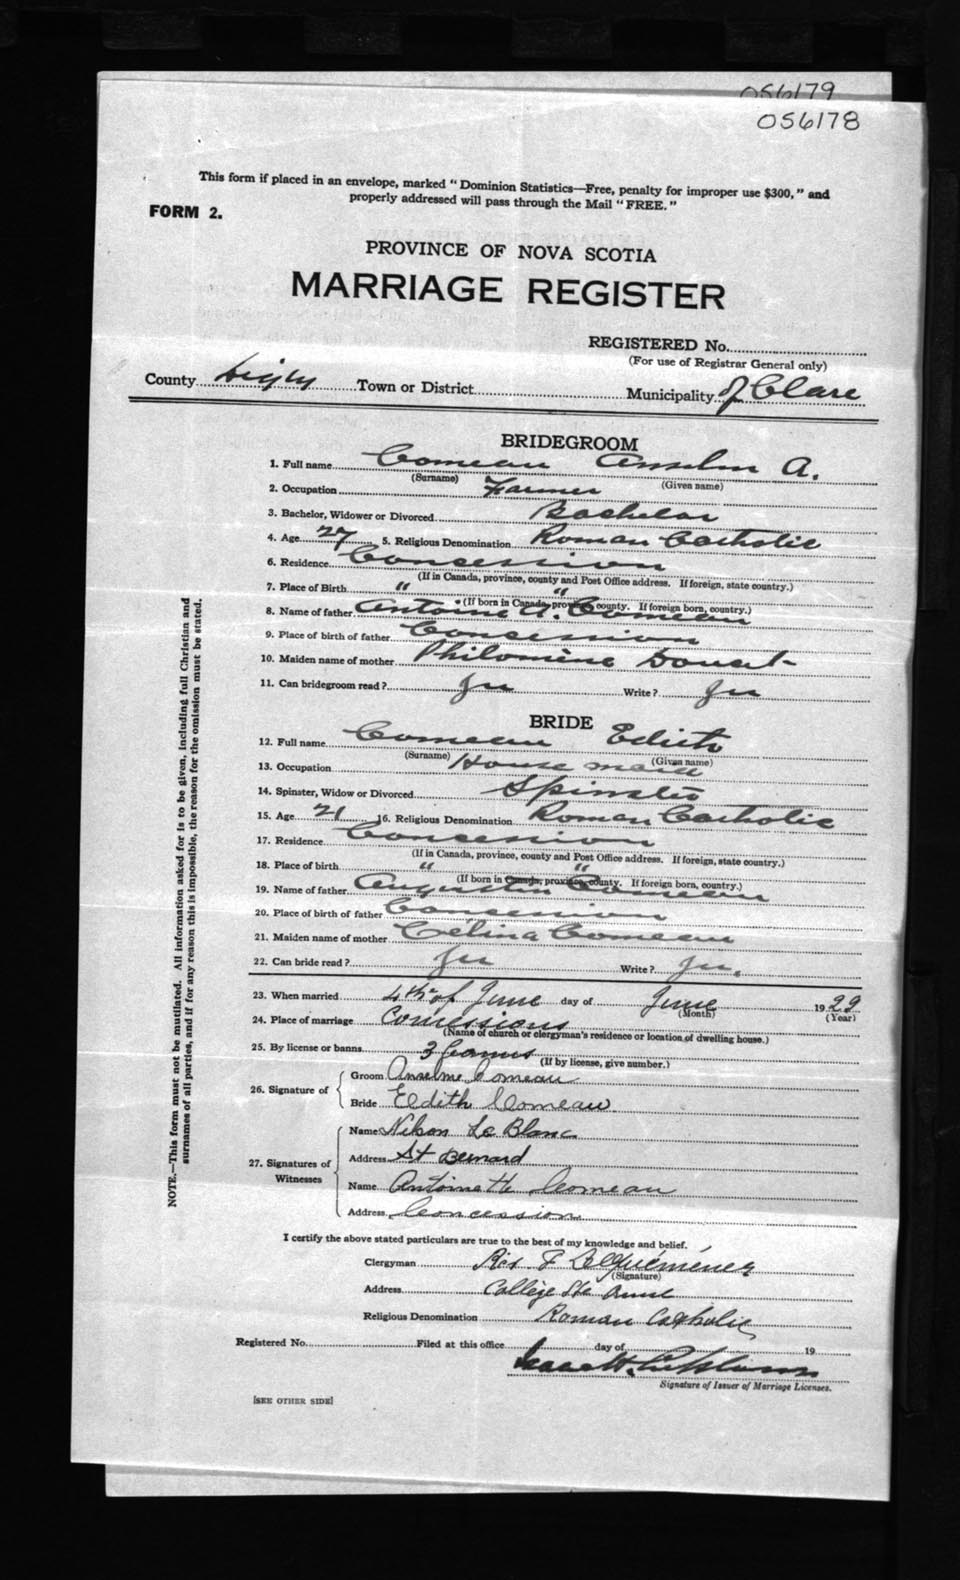 056179
056178
This form if placed in an envelope, marked "Dominion Statistics—Free, penalty for improper use $300," and
properly addressed will pass through the Mail "FREE."
FORM 2.
PROVINCE OF NOVA SCOTIA
MARRIAGE REGISTER
REGISTERED No.
(For use of Registrar General only)
County Digby Town or District Municipality of Clare
BRIDEGROOM
1. Full name Comeau Anselm A.
(Surname) (Given name)
2. Occupation Farmer
3. Bachelor, Widower or Divorced Bachelor
4. Age 27 5. Religious Denomination Roman Catholic
6. Residence Concession
(If in Canada, province, county and Post Office address. If foreign, state country.)
7. Place of Birth " "
(If born in Canada, province, county. If foreign born, country.)
8. Name of father Antoine A. Comeau
9. Place of birth of father Concession
10. Maiden name of mother Philomène Doucet
11. Can bridegroom read? Yes Write? Yes
BRIDE
12. Full name Comeau Edith
(Surname) (Given name)
13. Occupation House maid
14. Spinster, Widow or Divorced Spinster
15. Age 21 16. Religious Denomination Roman Catholic
17. Residence Concession
(If in Canada, province, county and Post Office address. If foreign, state country.)
18. Place of birth " "
(If born in Canada, province, county. If foreign born, country.)
19. Name of father Augustin Comeau
20. Place of birth of father Concession
21. Maiden name of mother Célina Comeau
22. Can bride read? Yes Write? Yes.
23. When married 4th of June day of June 1929
(Month) (Year)
24. Place of marriage Concessions
(Name of church or clergyman's residence or location of dwelling house.)
25. By license or banns 3 banns
(If by license, give number.)
26. Signature of
Groom Anselme Comeau
Bride Eldith Comeau
27. Signatures of Witnesses
Name Nelson Le Blanc
Address St Bernard
Name Antoinette Comeau
Address Concession
I certify the above stated particulars are true to the best of my knowledge and belief.
Clergyman
(Signature)
Address College Ste Anne
Religious Denomination Roman Catholic
Registered No. Filed at this office day of 19
Signature of Issuer of Marriage Licenses.
[SEE OTHER SIDE]
NOTE.—This form must not be mutilated. All information asked for is to be given, including full Christian and
surnames of all parties, and if for any reason this is impossible, the reason for the omission must be stated.